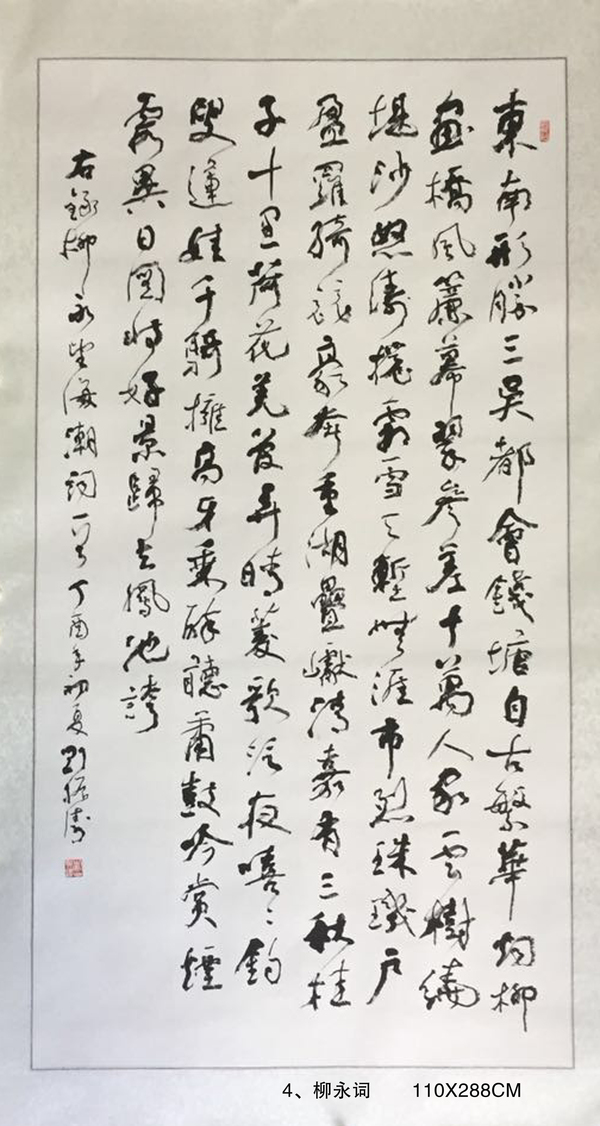 東南形勝三吳都會錢塘自古繁華烟柳
畫橋風簾幕翠參差十萬人家雲樹繞
堤沙怒濤捲霜雪天塹無涯市烈珠璣户
盈羅綺競豪奢重湖疊巘清嘉有三秋桂
子十里荷花羌管弄晴菱歌泛夜嘻〻釣
叟蓮娃千騎擁高牙乘醉聽蕭鼓吟賞煙
霞異日圖將好景歸去鳳池誇
右錄柳永望海潮詞一首 丁酉年初夏 劉振濤
4、柳永词 110X288CM